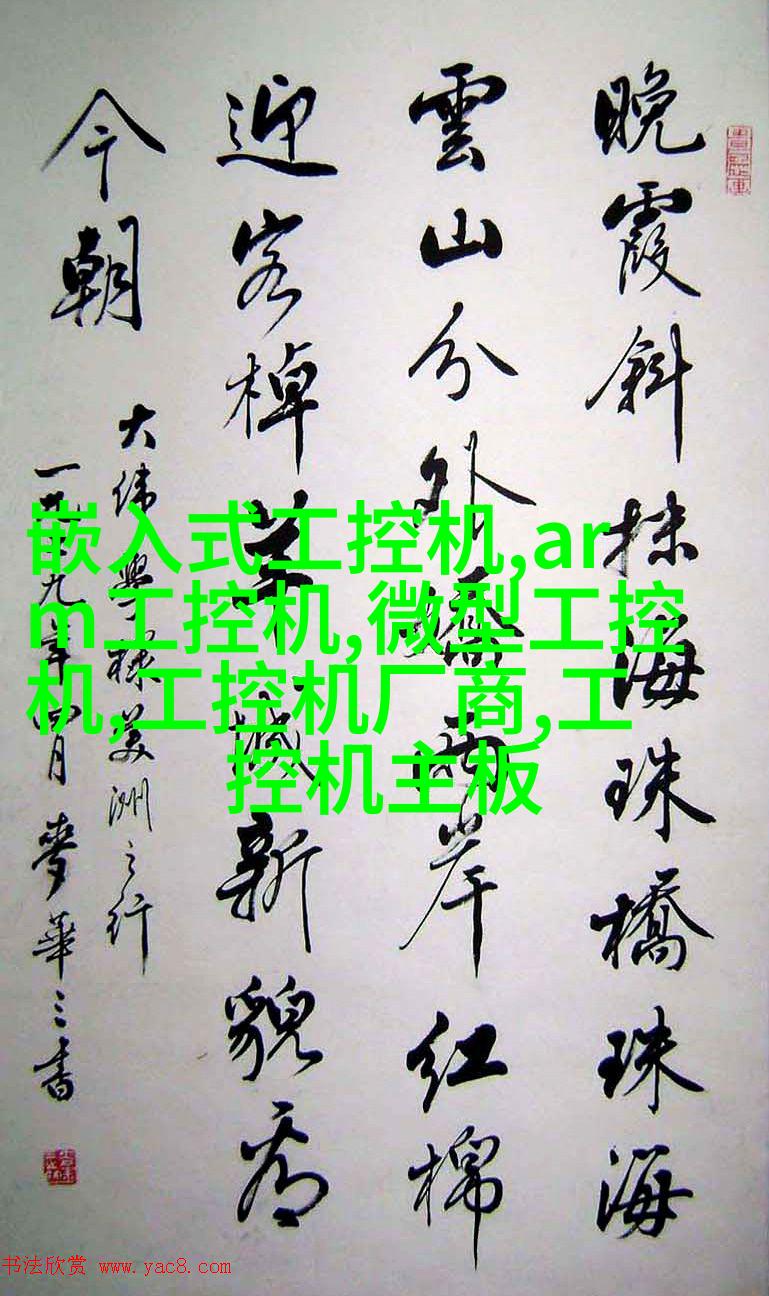 晚霞斜抹海珠橋珠海
雲山分外嬌兩岸紅棉
迎客棹羊城新貌看
今朝
大緯學棣美洲之行
一九七九年四月麥華三書
嵌入式工控机,ar
m工控机,微型工控
机,工控机厂商,工
控机主板
书法欣赏 www.yac8.com